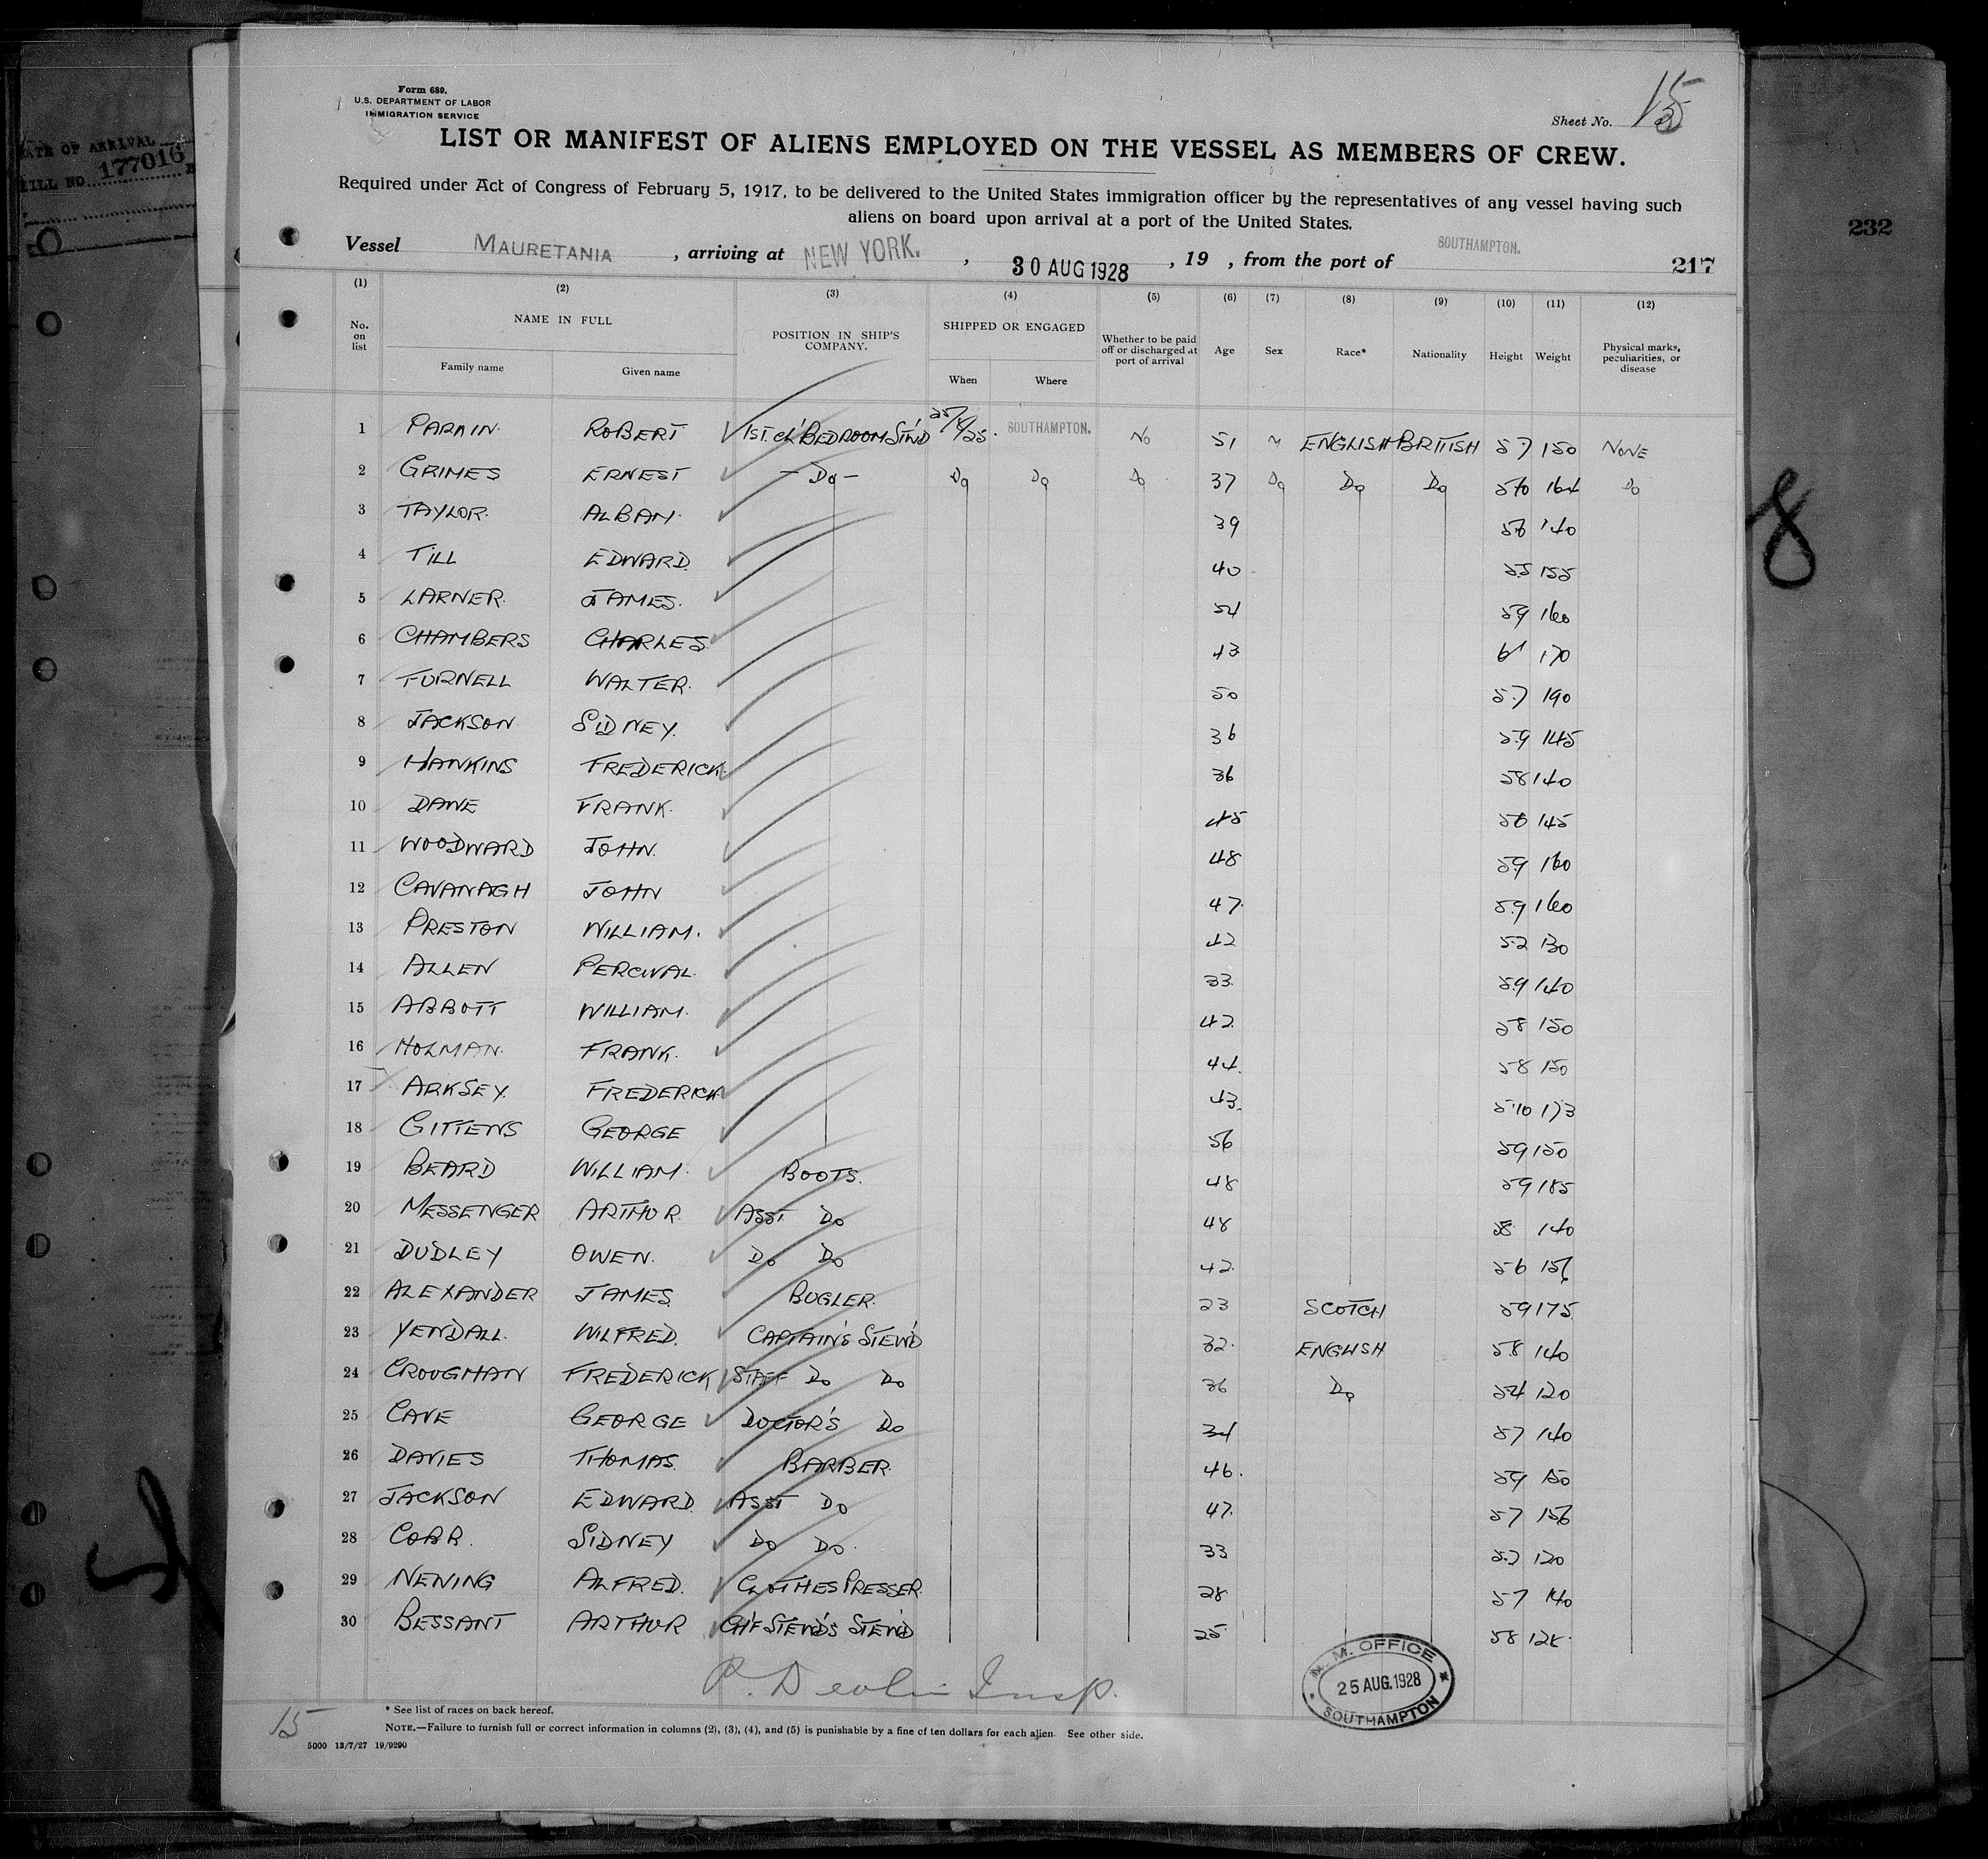 Form 680.
U.S. DEPARTMENT OF LABOR
IMMIGRATION SERVICE
Sheet No. 15
LIST OR MANIFEST OF ALIENS EMPLOYED ON THE VESSEL AS MEMBERS OF CREW.
Required under Act of Congress of February 5, 1917, to be delivered to the United States immigration officer by the representatives of any vessel having such
aliens on board upon arrival at a port of the United States.
Vessel MAURETANIA, arriving at NEW YORK., 30 AUG 1928, 19 , from the port of SOUTHAMPTON. 217
(1) (2) (3) (4) (5) (6) (7) (8) (9) (10) (11) (12)
No. on list NAME IN FULL POSITION IN SHIP'S COMPANY. SHIPPED OR ENGAGED Whether to be paid off or discharged at port of arrival Age Sex Race* Nationality Height Weight Physical marks, peculiarities, or disease
Family name Given name When Where
1 PARKIN ROBERT 1ST. CL' BEDROOM STW'D SOUTHAMPTON. NO 51 M ENGLISH BRITISH 5.7 150 NONE
2 GRIMES ERNEST - Do - Do Do Do 37 Do Do Do 164 Do
3 TAYLOR. ALBAN. 39 140
4 TILL EDWARD. 40 55 155
5 LARNER. JAMES. 54 59 160
6 CHAMBERS CHARLES 43 170
7 TURNELL WALTER. 50 5.7 190
8 JACKSON SIDNEY. 36 5.9 145
9 HAWKINS FREDERICK. 36 58 140
10 DAWE FRANK. 45 145
11 WOODWARD JOHN. 48 5.9 160
12 CAVANAGH JOHN 47. 5.9 160
13 PRESTON WILLIAM. 42 52 130
14 ALLEN PERCIVAL. 33. 5.9 140
15 ABBOTT WILLIAM. 42 58 150
16 HOLMAN. FRANK. 44. 58 150
17 ARKSEY. FREDERICK 43. 5.10 173
18 GITTENS GEORGE 56 59 150
19 BEARD WILLIAM. BOOTS. 48 59 185
20 MESSENGER ARTHUR. ASST Do 48 58 140
21 DUDLEY OWEN. Do Do 42. 56
22 ALEXANDER JAMES. BUGLER. 23 SCOTCH 59 175
23 YENDALL. WILFRED. CAPTAIN'S STEW'D 32. ENGLISH 5.8 140
24 CROUGHAN FREDERICK STAFF Do Do 36 Do 54 120
25 CAVE GEORGE DOCTOR'S Do 34 57 140
26 DAVIES THOMAS. BARBER. 46. 59 150
27 JACKSON EDWARD. ASST Do 47. 57 156
28 SIDNEY Do Do. 33 5.7 120
29 NENING ALFRED. CLOTHES PRESSER. 28 57 140
30 BESSANT ARTHUR CH'F STEW'D'S STEW'D 25 58 128.
P. Devlin Insp.
M.M. OFFICE
25 AUG. 1928
SOUTHAMPTON
15
* See list of races on back hereof.
NOTE.—Failure to furnish full or correct information in columns (2), (3), (4), and (5) is punishable by a fine of ten dollars for each alien. See other side.
5000 13/7/27 19/9290
DATE OF ARRIVAL
BILL NO. 177016
232
8